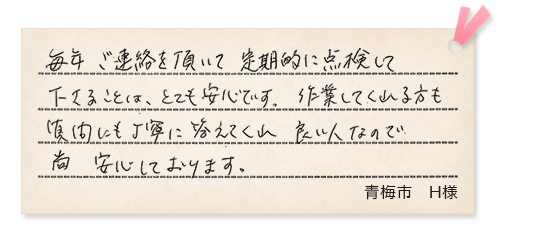 毎年 ご連絡を頂いて 定期的に点検して
下さることは、とても安心です。作業してくれる方も
質問にも丁寧に答えてくれ 良い人なので
尚 安心しております。
青梅市 H様